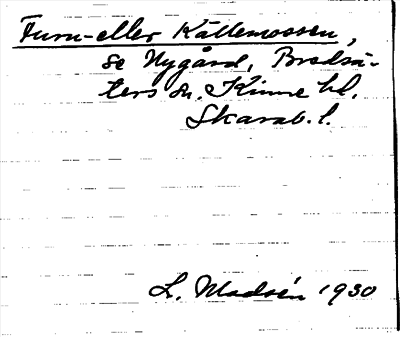 Furu- eller Källemossen,
se Nygård, Bredsä-
ters sn. Kinne hd.
Skarab. l.
L. Modéen 1930